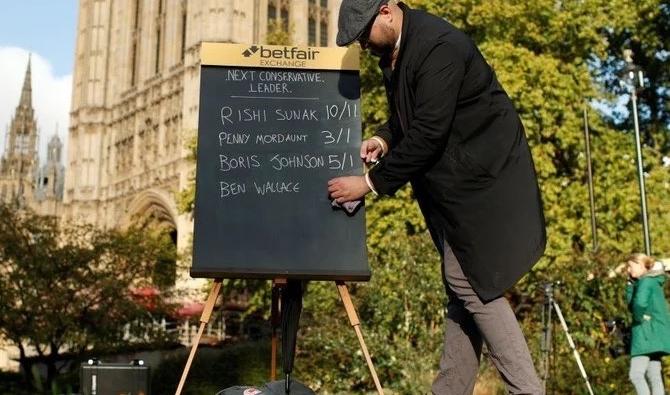 betfair
EXCHANGE
NEXT CONSERVATIVE.
LEADER.
RISHI SUNAK 10/11
PENNY MORDAUNT 3/1
BORIS JOHNSON 5/1
BEN WALLACE